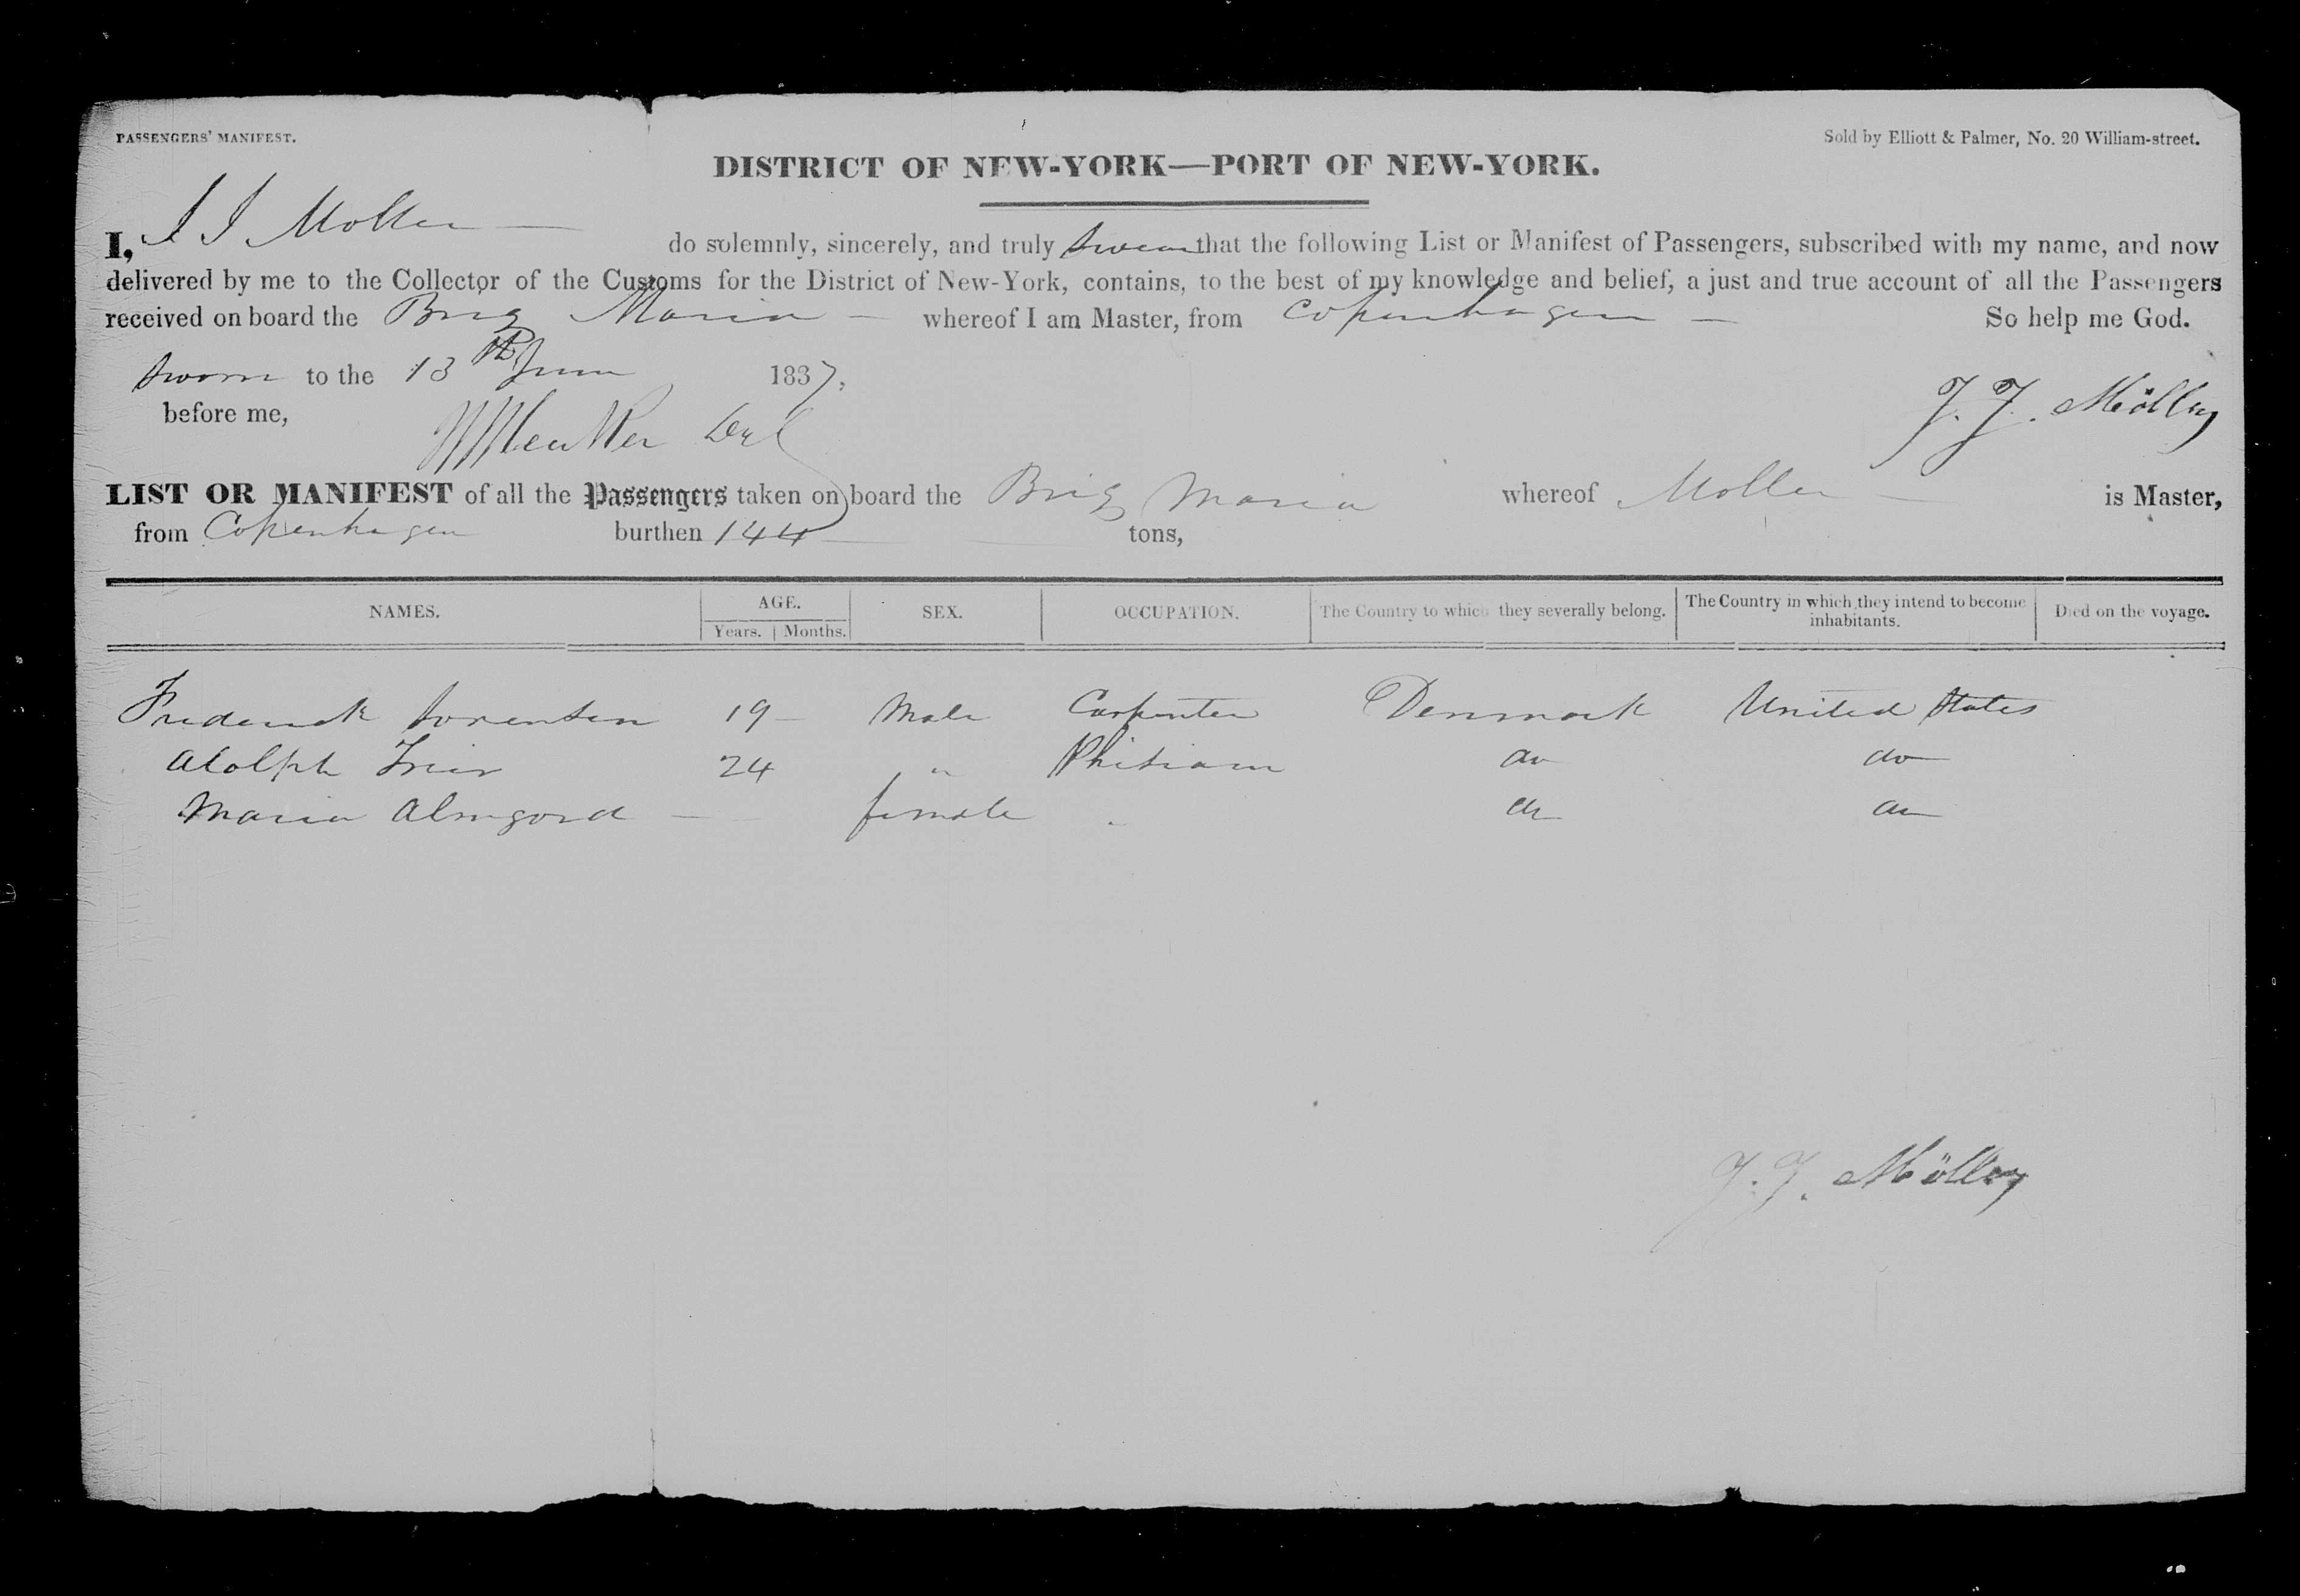 PASSENGERS' MANIFEST.
Sold by Elliott & Palmer, No. 20 William-street.
DISTRICT OF NEW-YORK—PORT OF NEW-YORK.
I, J J Moller do solemnly, sincerely, and truly swear that the following List or Manifest of Passengers, subscribed with my name, and now
delivered by me to the Collector of the Customs for the District of New-York, contains, to the best of my knowledge and belief, a just and true account of all the Passengers
received on board the Brig Maria whereof I am Master, from Copenhagen So help me God.
Sworn to the 13th June 1837,
before me,
J. J. Möller
LIST OR MANIFEST of all the Passengers taken on board the Brig Maria whereof Moller is Master,
from Copenhagen burthen 144 tons,
NAMES. AGE. Years. Months. SEX. OCCUPATION. The Country to which they severally belong. The Country in which they intend to become inhabitants. Died on the voyage.
Frederick Sorensen 19 Male Carpenter Denmark United States
Adolph 24 " Phisiam do do
Maria Almgord female do do
J. J. Möller